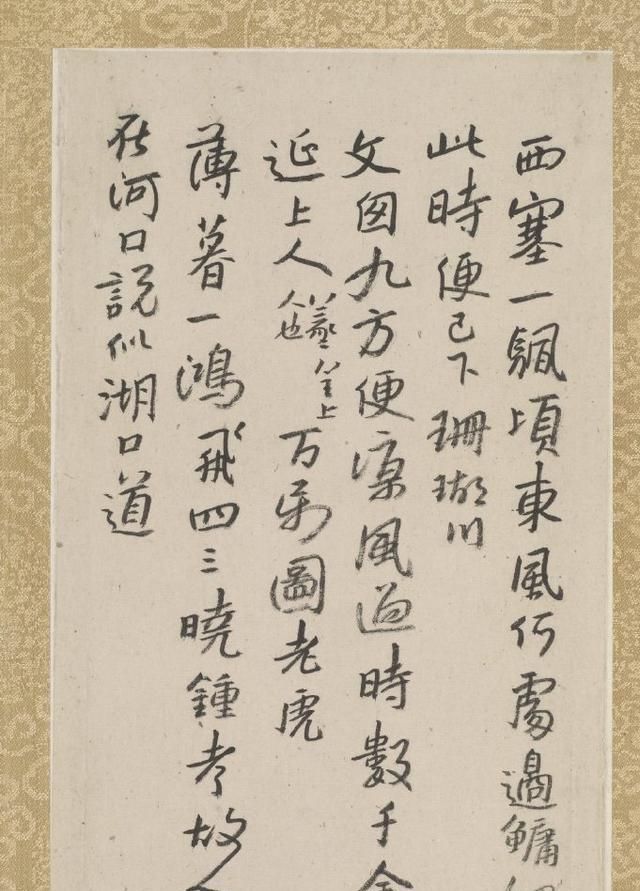 西塞一颿頃東風何處過鱅
此時便已下珊瑚川
文囡九方便涼風過時數千
延上人
上人也
万圖老虎
薄暮一鴻飛四三曉鍾考故
在河口說似湖口道